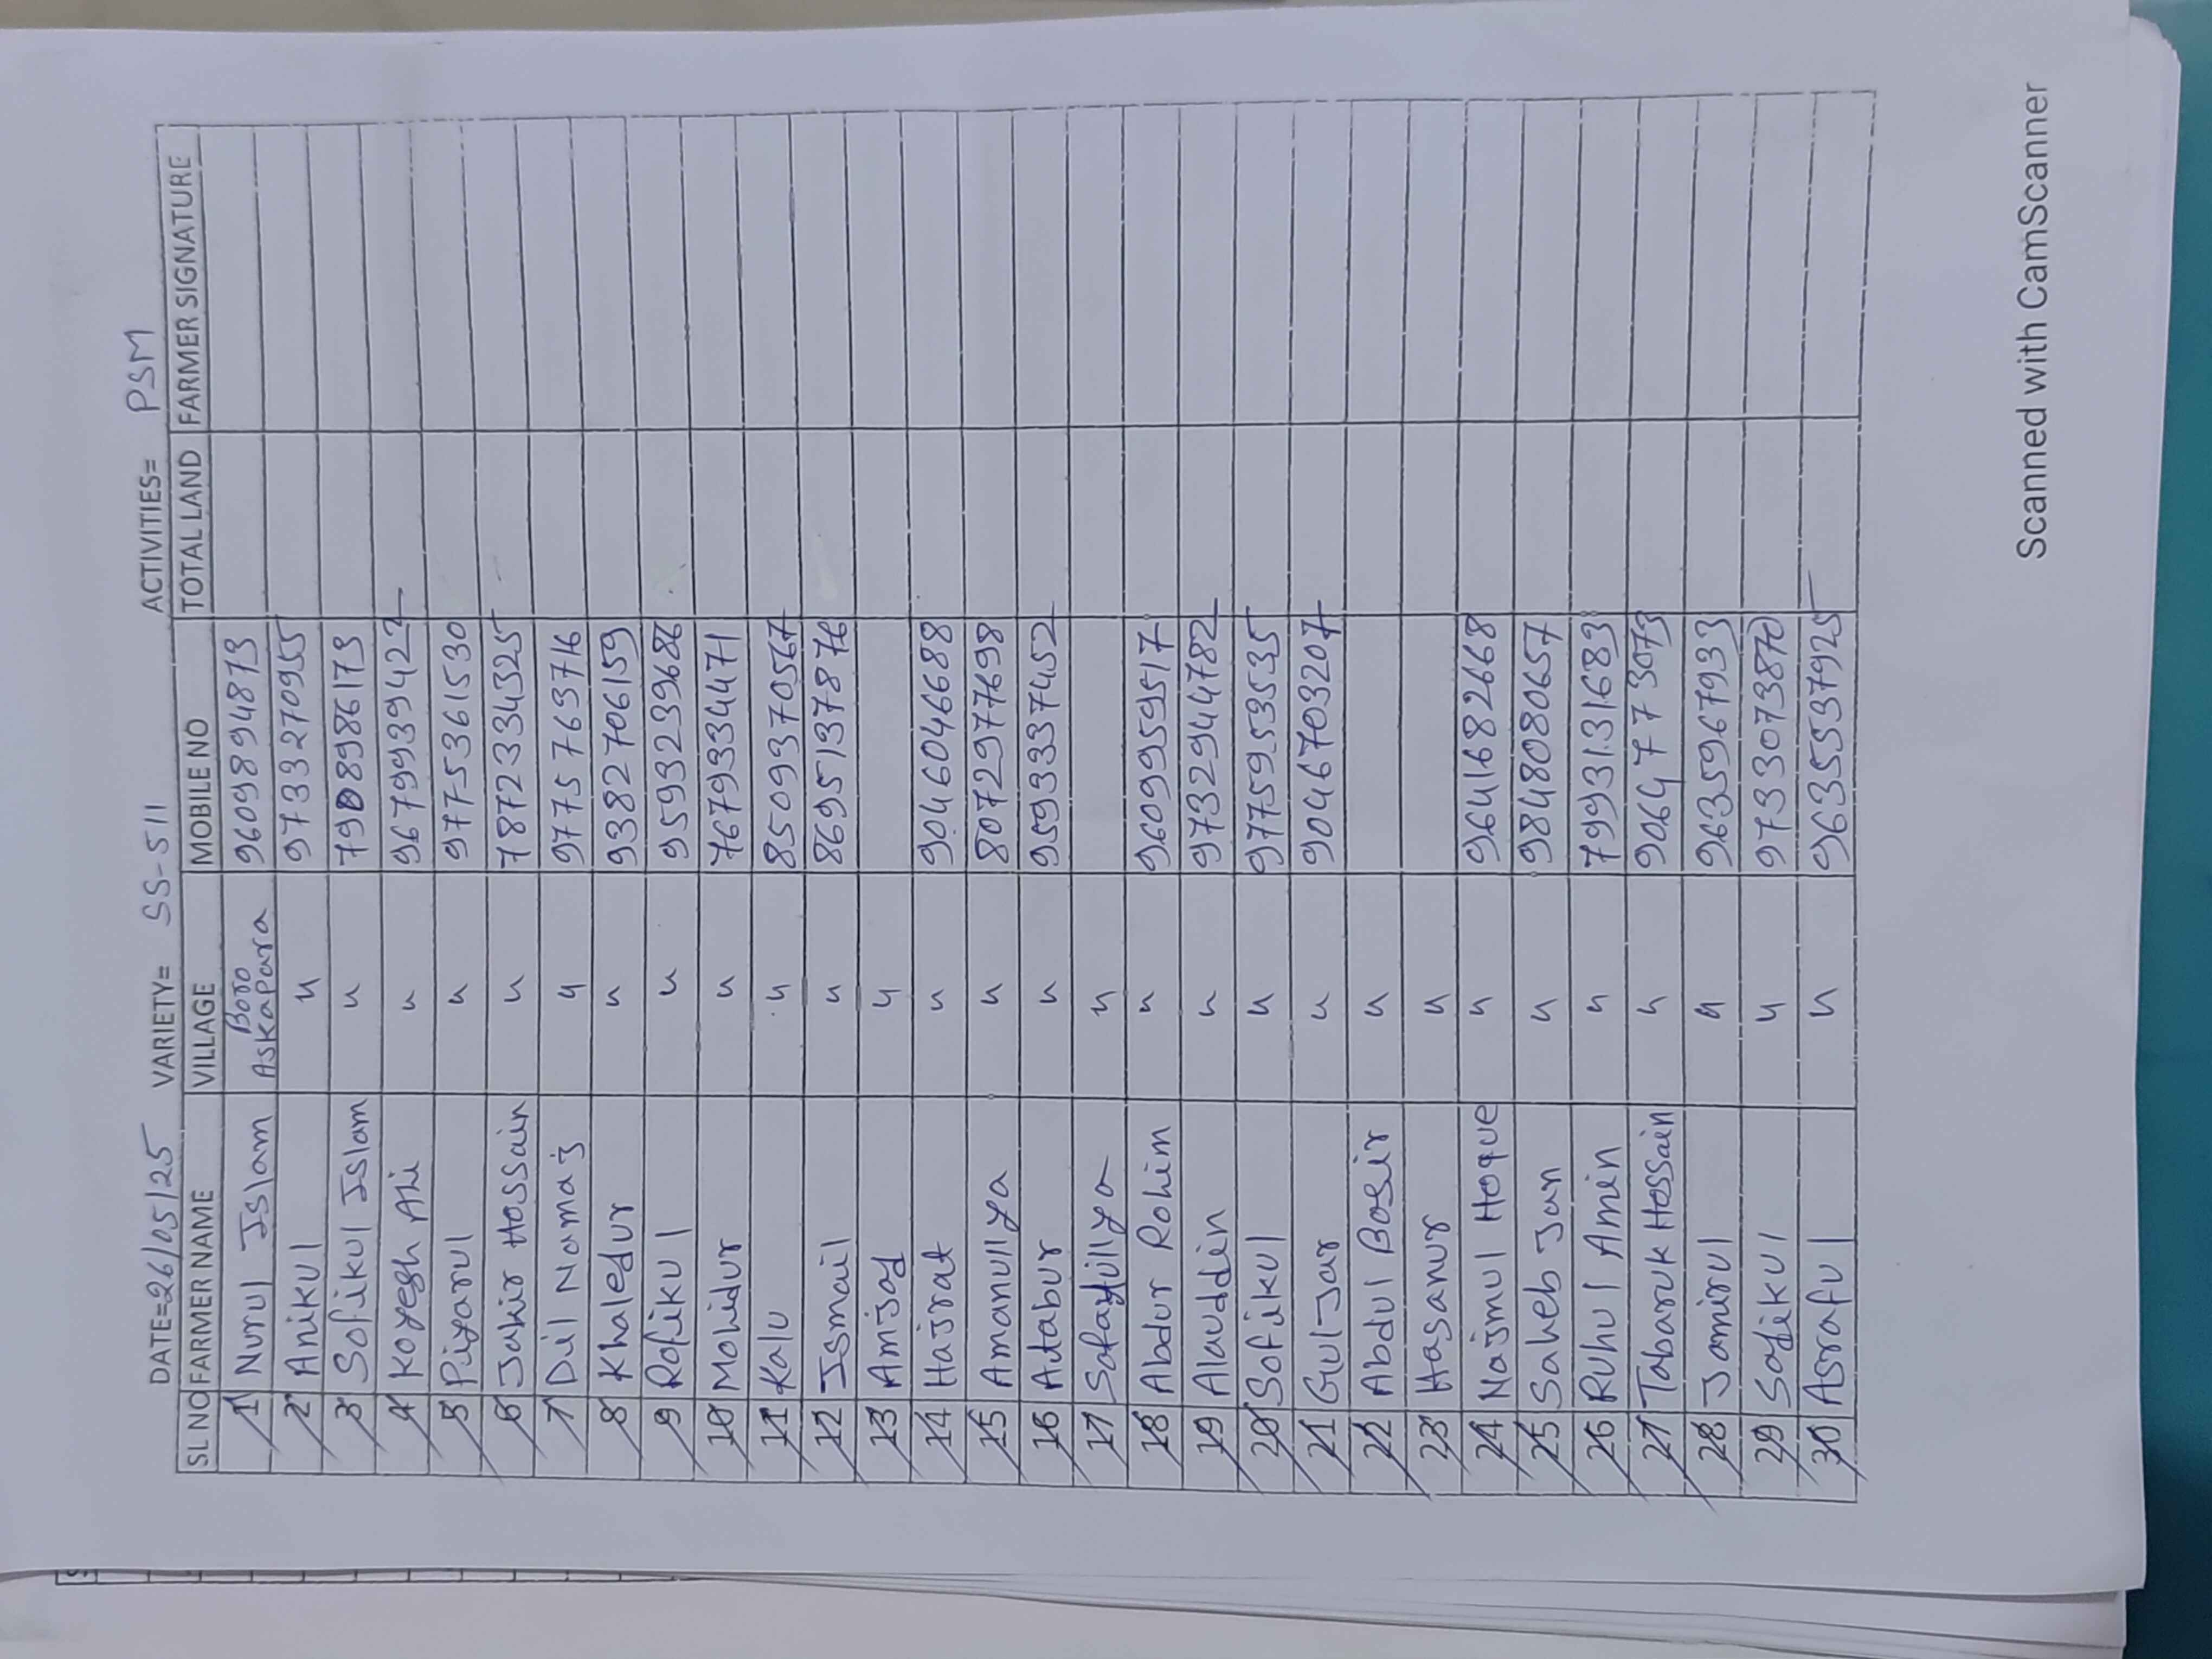 DATE=26/05/25 VARIETY= SS-511 ACTIVITIES= PSM
SL NO FARMER NAME VILLAGE MOBILE NO TOTAL LAND FARMER SIGNATURE
1 Nurul Islam Boro Askapara 9609894873
2 Anikul " 9733270955
3 Sofikul Islam " 7908986173
4 Koyesh Ali " 9679939422
5 Piyarul " 9775361530
6 Jahir Hossain " 7872334325
7 Dil Namaz " 9775763716
8 Khaledur " 9382706159
9 Rofikul " 9593239686
10 Mohidur " 7679334471
11 Kalu " 8509370567
12 Ismail " 8695137876
13 Amjad "
14 Hajrat " 9046046688
15 Amanullya " 8072977698
16 Autabur " 9593337452
17 Sofayüllya "
18 Abdur Rohim " 9609959517
19 Alauddin " 9732944782
20 Sofikul " 9775953535
21 Gul-Jar " 9046703207
22 Abdul Bosir "
23 Hasanur "
24 Najmul Hoque " 9641682668
25 Saheb Jan " 9848080657
26 Ruhul Amin " 7993131683
27 Tabaruk Hossain " 9064773073
28 Jamirul " 9635967933
29 Sadikul " 9733073870
30 Asraful " 9635537925
Scanned with CamScanner